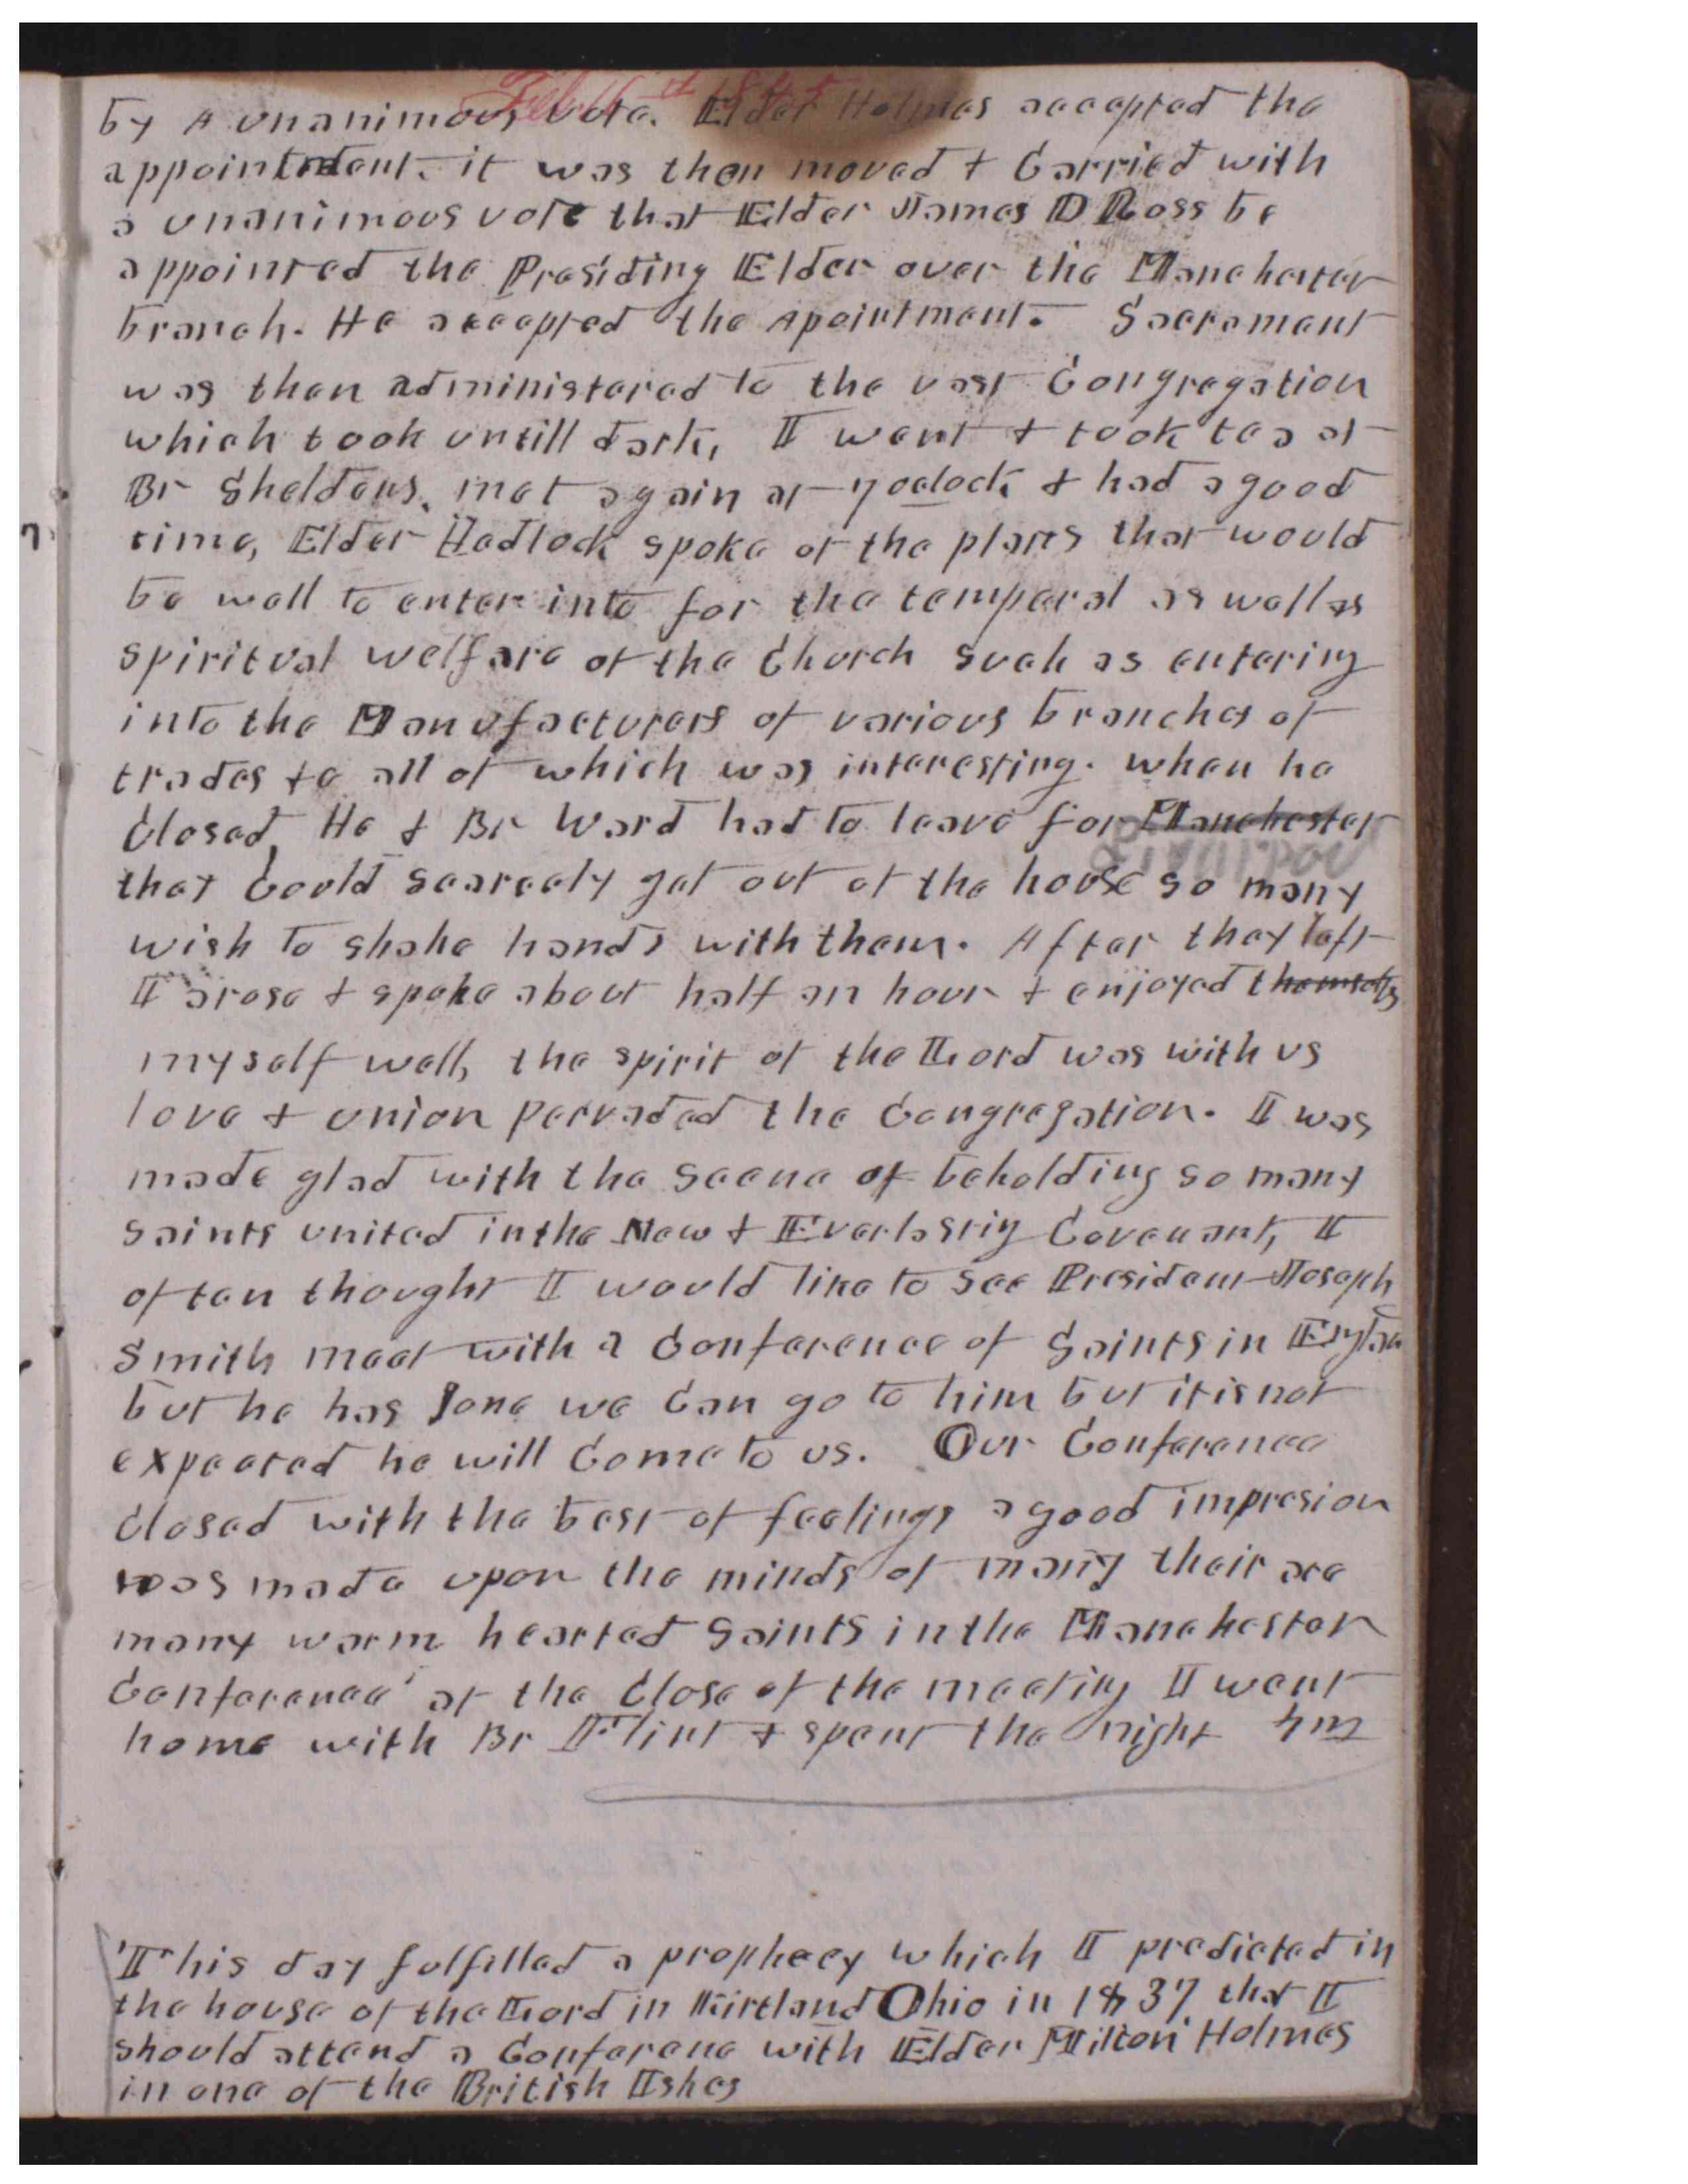 Feb 16th 1845
by A unanimous vote. Elder Holmes accepted the
appointment. it was then moved & Carried with
a unanimous vote that Elder James D Ross be
appointed the Presiding Elder over the Manchester
branch. He accepted the apointment. Sacrament
was then administered to the vast Congregation
which took untill dark, I went & took tea at
Br Sheldens. met again at 7 oclock & had a good
time, Elder Hedlock spoke of the plans that would
be well to enter into for the temperal as well as
spiritual welfare of the Church such as entering
into the Manufacturers of various branches of
trades to all of which was interesting. when he
Closed, He & Br Ward had to leave for Manchester
Liverpool
that Could scarcely get out of the house so many
wish to shake hands with them. After they left
I arose & spoke about half an hour & enjoyed themselfs
myself well, the spirit of the Lord was with us
love & union pervaded the Congregation. I was
made glad with the scene of beholding so many
saints united in the New & Everlastig Covenant, I
often thought I would like to see President Joseph
Smith meet with a Conference of Saints in Englan
but he has gone we Can go to him but it is not
expected he will Come to us. Our Conference
Closed with the best of feelings a good impresion
was made upon the minds of many their are
many warm hearted Saints in the Manchester
Conference at the Close of the meeting I went
home with Br Flint & spent the night 4 m
This day fulfilled a prophecy which I predicted in
the house of the Lord in Kirtland Ohio in 1837 that I
should attend a Conferenc with Elder Milton Holmes
in one of the British Ishes